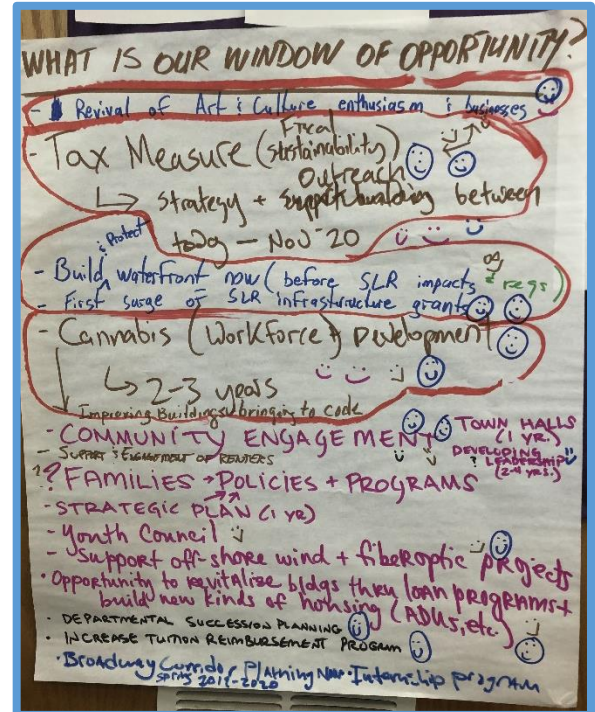 WHAT IS OUR WINDOW OF OPPORTUNITY?
- Revival of Art & Culture enthusiasm & businesses
- Tax Measure (Fiscal sustainability)
Outreach
↳ Strategy + Support building between
today - Nov '20
- Build & Protect waterfront now (before SLR impacts & regs)
- First surge of SLR infrastructure grants
- Cannabis (Workforce) + Development
↳ 2-3 years
Improving Buildings/bringing to code
- COMMUNITY ENGAGEMENT
TOWN HALLS
(1 YR.)
- SUPPORT & ENGAGEMENT OF RENTERS
DEVELOPING
LEADERSHIP
? FAMILIES → POLICIES + PROGRAMS
- STRATEGIC PLAN (1 YR)
- Youth Council
- Support off-shore wind + fiberoptic projects
• Opportunity to revitalize bldgs thru loan programs +
build new kinds of housing (ADUs, etc.)
• DEPARTMENTAL SUCCESSION PLANNING
• INCREASE TUITION REIMBURSEMENT PROGRAM
• Broadway Corridor Planning Now • Internship program
Spring 2019-2020